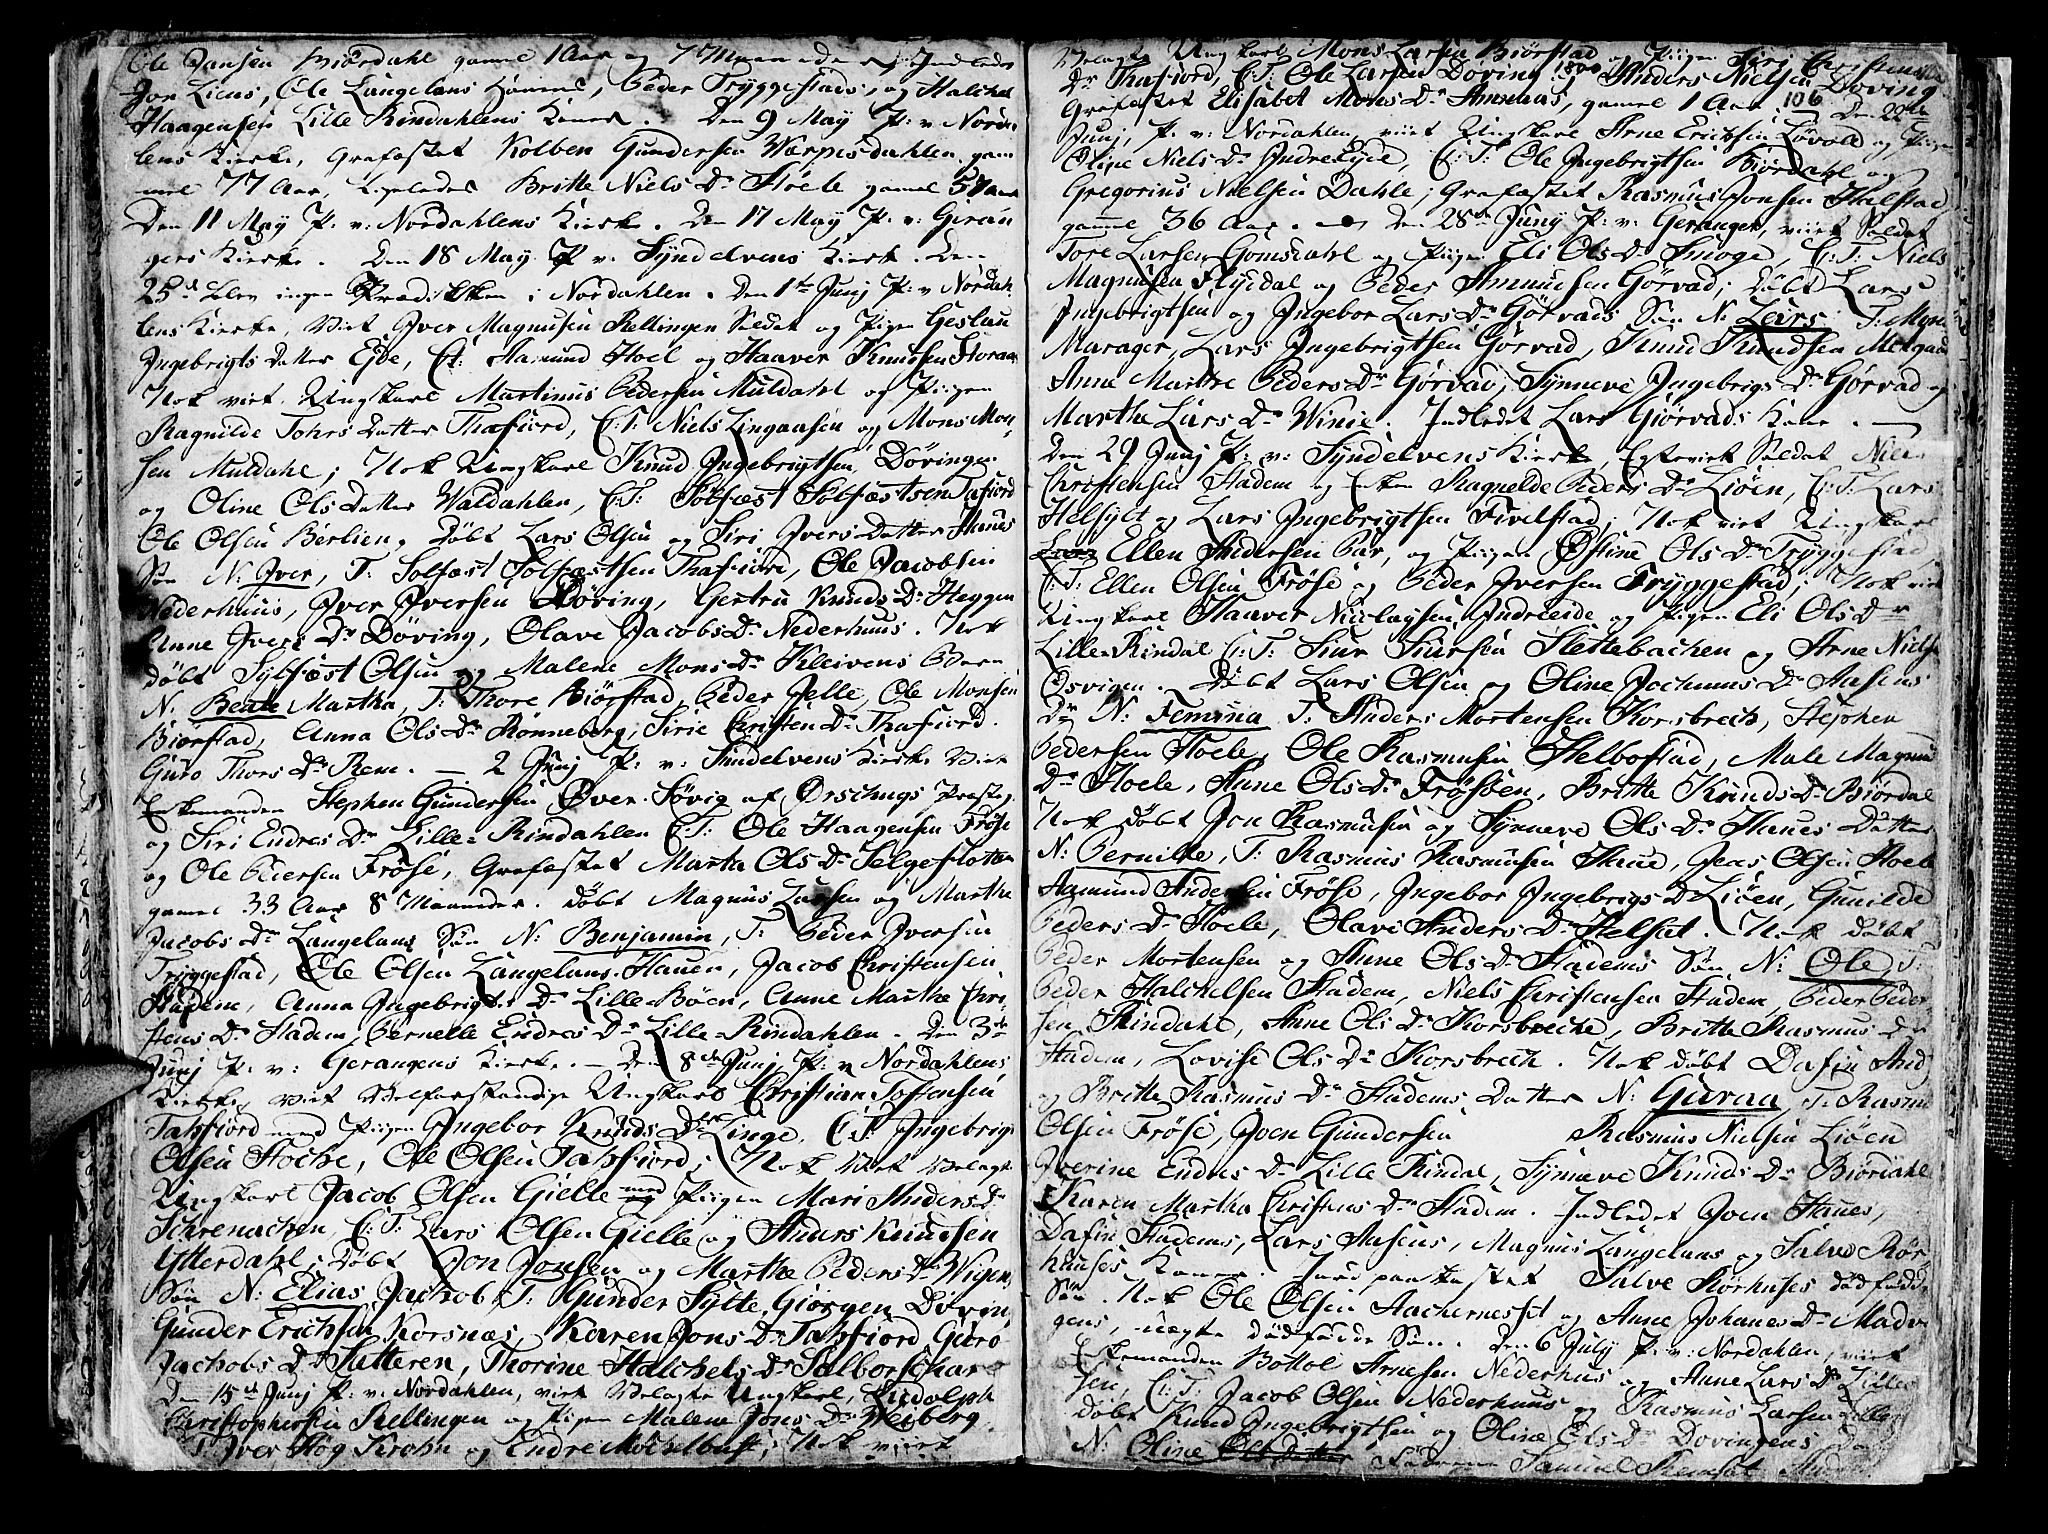 Ole Jansen Biørdahl gamel 1 Aar og 7 Maaneder. Indledt
Jon Liens, Ole Langelans Koner, Peder Tryggestads, og Halchel
Haagensen Lille Rindahlens Koner. Den 9 May P: v: Norda-
lens Kirke, Grafæstet Kolben Gundersen Werpesdahlen gam
mel 77 Aar, Ligeledes Britte Niels Dr Hoele gamel 57 Aar
Den 11 May P: v: Nordahlens Kirke. Den 17 May P: v: Geran
gers Kirke. Den 18 May P v: Syndelvens Kirke. Den
25de blev ingen Prædikken i Nordahlen. Den 1te Junj P: v Nordah
lens Kirke Viet Iver Magnusen Rellingen Soldat og Pigen Geslau
Ingebrigts Datter Ejde, C: T: Aamund Hoel og Haaver Knudsen Storaas
Nok viet Ungkarl Martinus Pedersen Muldahl og Pigen
Ragnilde Tohrs Datter Thafiord, C: T: Niels Lingaasen og Mons Mon-
sen Muldahl; Nok Ungkarl Knud Ingebrigtsen Døvingen
og Oline Ols Datter Waldahlen, C: T: Sølfæst Sølfæstsen Tafiord
Ole Olsen Berlien, Døbt Lars Olsen og Siri Ivers Datter Hanes
Søn N: Iver, T: Solfæst Solfæstsen Thafiord, Ole Jacobsen
Nederhuus, Iver Iversen Døving, Gertru Knuds Dr Heggen
Anne Ivers Dr Døving, Olave Jacobs Dr Nederhuus. Nok
døbt Sylfæst Olsen og Malene Mons Dr Kleivens Barn
N: Beate Martha, T: Thore Biørstad, Peder Jelle, Ole Monsen
Biørstad, Anna Ols Dr Rønneberg, Sirie Christen Dr Thafiord.
Guro Thors Dr Rem. — 2 Junj P: v: Sündelvens Kirke Viet
Enkemanden Stephen Gundersen Øver-Søvig af Ørschugs Præsteg:
og Siri Endres Dr Lille-Rindahlen C: T: Ole Haagensen Frøse
og Ole Pedersen Frøse, Grafæstet Marta Ols Dr Selgeslotten
gamel 33 Aar 8 Maaneder. Døbt Magnus Larsen og Marthe
Jacobs Dr Langelans Søn N: Benjamin, T: Peder Iversen
Tryggestad, Ole Olsen Langelans-Hauen, Jacob Christensen
Stadem, Anna Ingebrigts Dr Lille-Bøen, Anne Marthe Chri
stens Dr Stadem, Pernelle Endres Dr Lille-Rindahlen. Den 3die
Junj P: v: Gerangens Kirke. — Den 8de Junj P: v Nordahlens
Kirke, viet Velforstandige Ungkarl Christian Toftensen
Tafsfiord med Pigen Ingebor Knuds Dr Linge, C: T: Ingebrigt
Olsen Hoche, Ole Olsen Tafsfiord; Nok Viet Velagte
Ungkarl Jacob Olsen Gielle med Pigen Mari Anders Dr
Schrenachen, C: T: Lars Olsen Gielle og Anders Knudsen
Ytterdahl; Døbt Jon Jonsen og Marthe Peders Dr Wigen
Søn N: Elias Jachob, T: Gunder Sylte, Giørgen Døvin,
Gunder Erichsen Korsnæs, Karen Jons Dr Tafsfiord, Guro
Jachobs Dr Satteren, Thorine Halchels Dr Selborschar
Den 15de Junj P: v: Nordahlen, viet Velagte Ungkarl, Rudolph
Christophersen Rellingen og Pigen Malene Jons Dr Weiberg
C: T: Iver Høg Krohn og Endre Mochelbust; Nok viet
Velagte Ungkarl Mons Larsen Biørstad og Pigen Siri Christens
1800
Dr Thafiord, C: T: Ole Larsen Døving, Anders Nielsen Døving
106
Grafæstet Elisabet Mons Dr Amenas, gamel 1 Aar. Den 22de
Junj, P. v: Nordahlen, viet Ungkarl Arne Erichsen Løvold og Pigen
Oline Niels Dr Indre-Eyde, C: T: Ole Ingebrigtsen Biørdahl og
Gregorius Nielsen Dahle; Grafæstet Rasmus Jonsen Halstad
gammel 36 Aar. — Den 28de Junj P. v: Geranger, viet Soldat
Tore Larsen Gomsdahl og Pigen Eli Ols Dr Smoge, C: T: Niels
Magnusen Flysdal og Peder Amundsen Gørvad; Døbt Lars
Ingebrigtsen og Ingebor Lars Dr Gørvads Søn N: Lars, T: Mons
Marager, Lars Ingebrigtsen Gørvad, Knud Knudsen Merraas
Anne Marthe Peders Dr Gørvad, Synneve Ingebrigs Dr Gørvad og
Marthe Lars Dr Winie. Indledet Lars Giørvads Kone. —
Den 29 Junj P: v: Syndelvens Kirke, Egteviet Soldat Niels
Christensen Stadem og Enken Ragnelde Peders Dr Liøen, C: T: Lars
Helsylt og Lars Ingebrigtsen Fivelstad; Nok viet Ungkarl
Ellen Andersen Bar, og Pigen Østine Ols Dr Tryggestad,
C: T: Ellen Olsen Frøse og Peder Iversen Tryggestad; Nok viet
Ungkarl Haaver Nicolaysen Indreeide og Pigen Eli Ols Dr
Lille-Rindal C: T: Siur Siursen Slettebachen og Arne Nielsen
Osvigen. Døbt Lars Olsen og Oline Jochums Dr Aasens
Dr N: Femina T: Anders Mortensen Korsbrech, Stephen
Pedersen Hoele, Ole Rasmusen Helbostad, Male Magnus
Dr Hoele, Anne Ols Dr Frøsøen, Britte Knuds Dr Biørdal
Nok døbt Jon Rasmusen og Synneve Ols Dr Haues Datter
N: Pernille, T: Rasmus Rasmusen Haue, Jens Olsen Hoele
Aamund Andersen Frøse, Ingebor Ingebrigs Dr Liøen, Gunilde
Peders Dr Hoele, Olave Anders Dr Helset. Nok døbt
Peder Mortensen og Anne Ols Dr Stadems Søn N: Ole, T:
Peder Halchelsen Stadem, Niels Christensen Stadem, Peder Peder
sen Rindahl, Anne Ols Dr Korsbreche, Britte Rasmus Dr
Stadem, Lovise Ols Dr Korsbrech. Nok døbt Dafin And
og Britte Rasmus Dr Stadems Datter N: Guraa, T: Rasmus
Olsen Frøse, Joen Gundersen Rasmus Nielsen Liøen
Iverine Endres Dr Lille Rindal, Synneve Knuds Dr Biørdahl
Karen Martha Christens Dr Stadem. Indledet Joen Haues,
Dafin Stadems, Lars Aasens, Magnus Langelans og Salve Rør
huses Koner. Jordpaakastet Salve Rørhuses dødfødde
Søn. Nok Ole Olsen Aachernesset og Anne Johanes Dr Madvi
gens, uægte dødfødde Søn. Den 6 July P: v: Nordahlen, viet
Enkemanden Bottol Arnesen Nederhus og Anne Lars Dr Lille
sen, C: T: Jacob Olsen Nederhuus og Rasmus Larsen Lille
døbt Knud Ingebrigtsen og Oline Ols Dr Dovingens
N: Oline Samuel